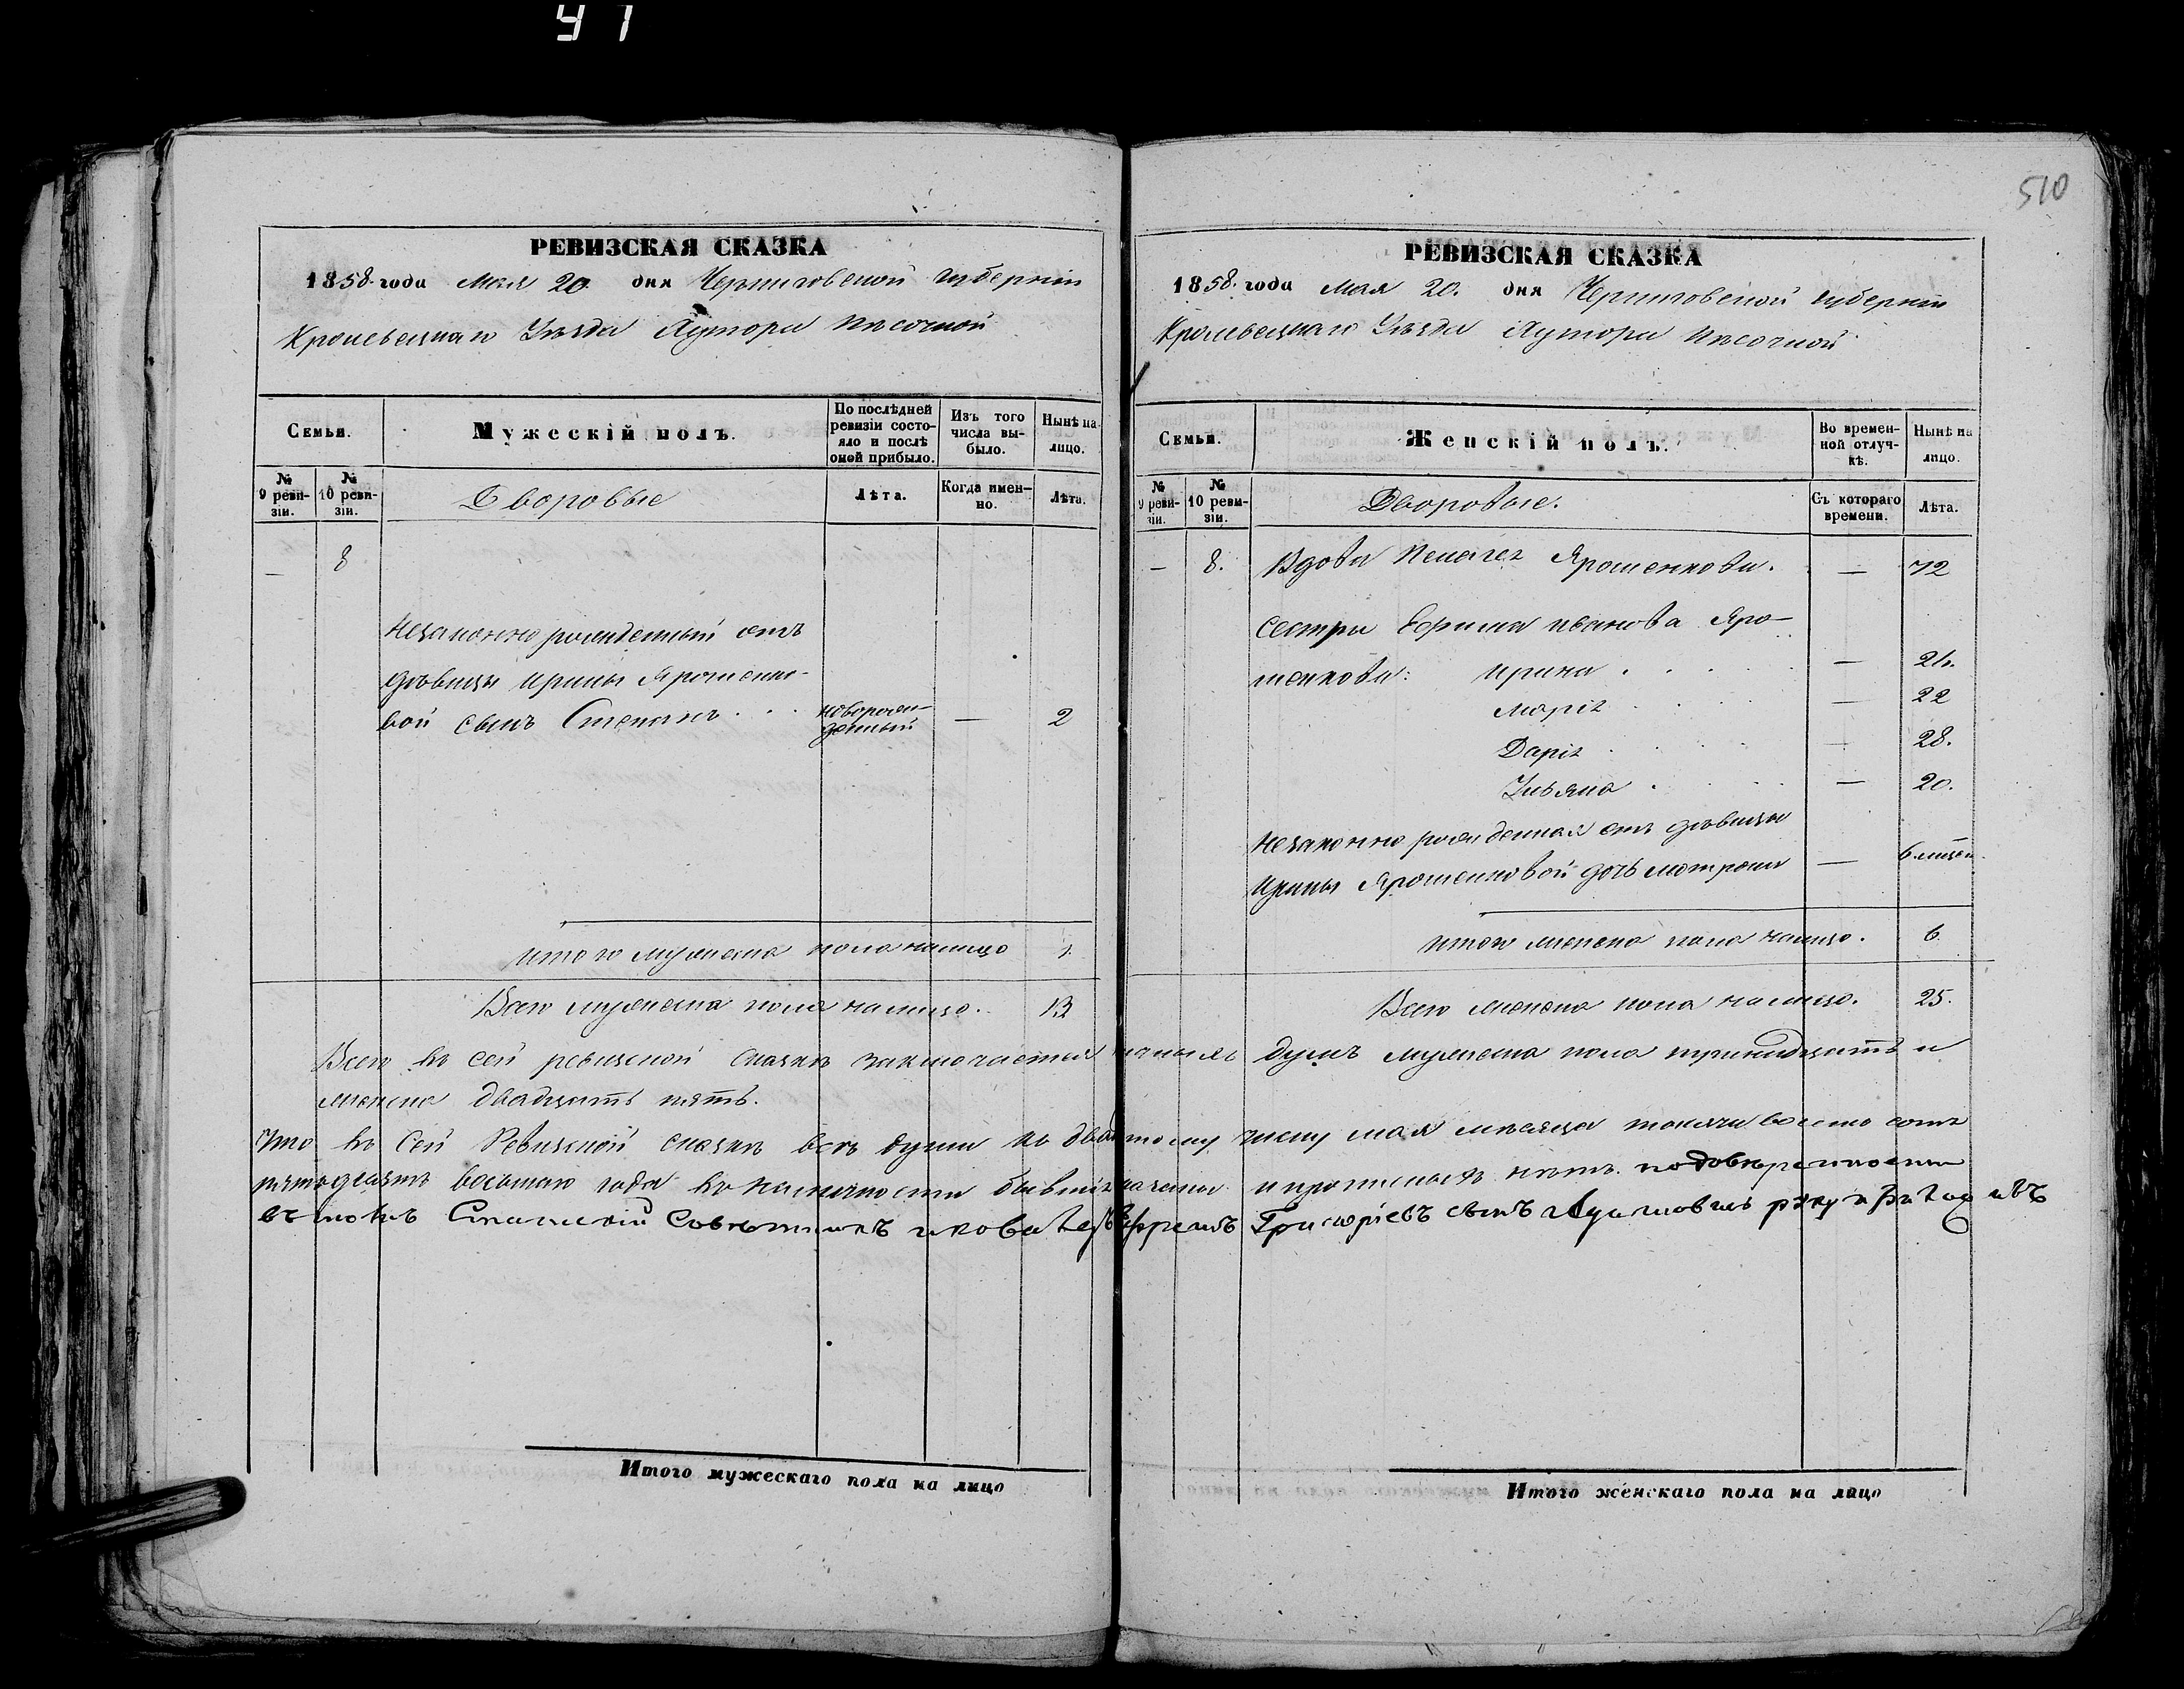 41
510
РЕВИЗСКАЯ СКАЗКА
1858 года Мая 20 дня Черниговской губерніи
Кролевецкаго Уѣзда Хутора Пѣсочной
Семьи.
Мужескій полъ.
По послѣдней ревизіи состояло и послѣ оной прибыло.
Изъ того числа выбыло.
Нынѣ на лицо.
№ 9 ревизіи.
№ 10 ревизіи.
Дворовые
Лѣта.
Когда именно.
Лѣта.
— 8
Незаконнорожденный отъ
дѣвицы Ирины Ярошенко-
вой сынъ Степанъ . . . новорожденный — 2
Итого мужеска пола налицо 1.
Всего мужеска пола налицо. 13
РЕВИЗСКАЯ СКАЗКА
1858. года Мая 20. дня Черниговской губерніи
Кролевецкаго Уѣзда Хутора Пѣсочной
Семьи.
Женскій полъ.
Во временной отлучкѣ.
Нынѣ на лицо.
№ 9 ревизіи.
№ 10 ревизіи.
Дворовые.
Съ котораго времени.
Лѣта.
— 8. Вдова Пелагея Ярошенкова. — 72
Сестры Ефима Иванова Яро-
шенкова: Ирина . . . . — 26.
Марія . . . — 22
Дарія . . . — 28.
Ульяна . . . — 20.
Незаконно рожденная отъ дѣвицы
Ирины Ярошенковой дочь Мотрона — 6 мѣсец.
Итого женска пола налицо. 6.
Всего женска пола налицо. 25.
Всего въ сей ревизской сказкѣ заключается душъ мужеска пола тринадцать и
женска двадцать пять.
Что въ сей Ревизской сказкѣ всѣ души къ двадцатому числу мая мѣсяца тысяча восемь сотъ
пятьдесятъ восьмаго года въ наличности бывшія и прописныхъ нѣтъ. по довѣренности
Статской Совѣтницы Ефремъ Григорьевъ сынъ руку приложивъ
Итого мужескаго пола на лицо
Итого женскаго пола на лицо